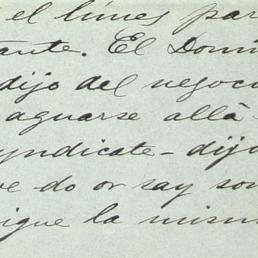 el lunes par
ante. El Domin
dijo del negoci
aguarse allá -
yndicate - dijo
e do or say som
igue la misma